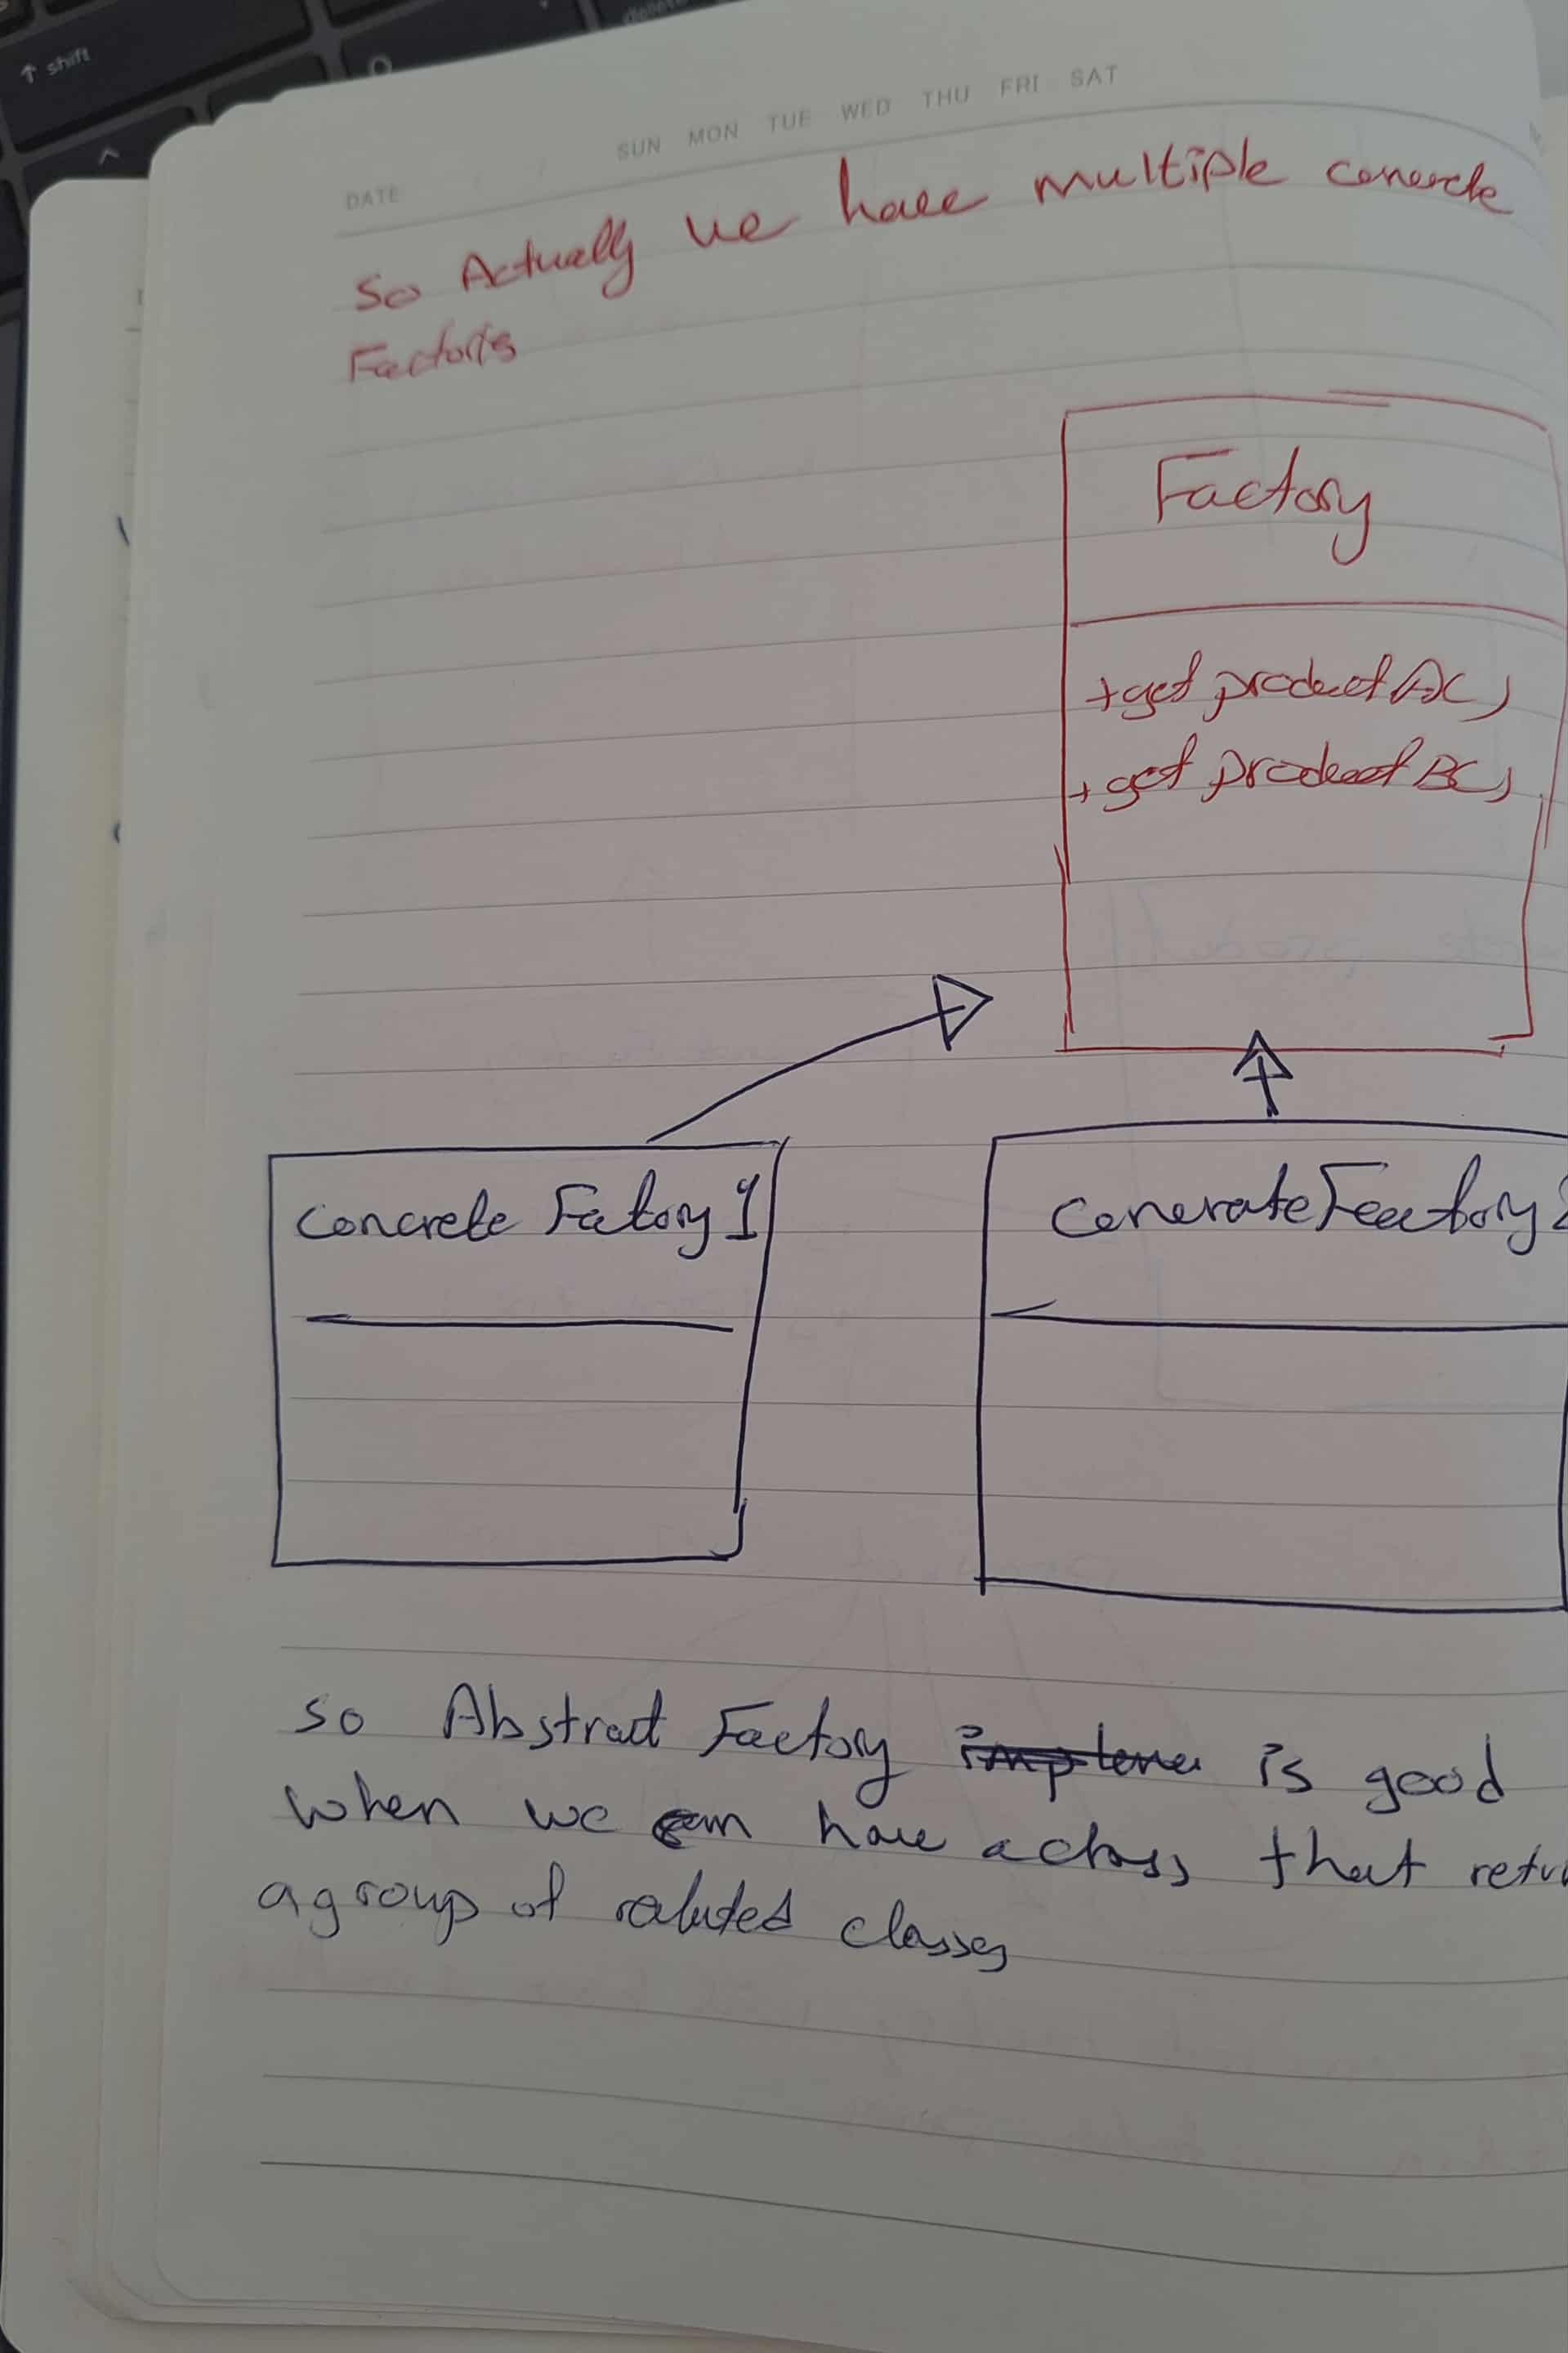 shift
DATE
SUN MON TUE WED THU FRI SAT
So Actually we have multiple concrete
Factoris
Factory
+get product A()
+get product B()
Concrete Factory 1
ConcrateFactory 2
so Abstract Factory is good
when we can have a class that retu
a group of raluted classes